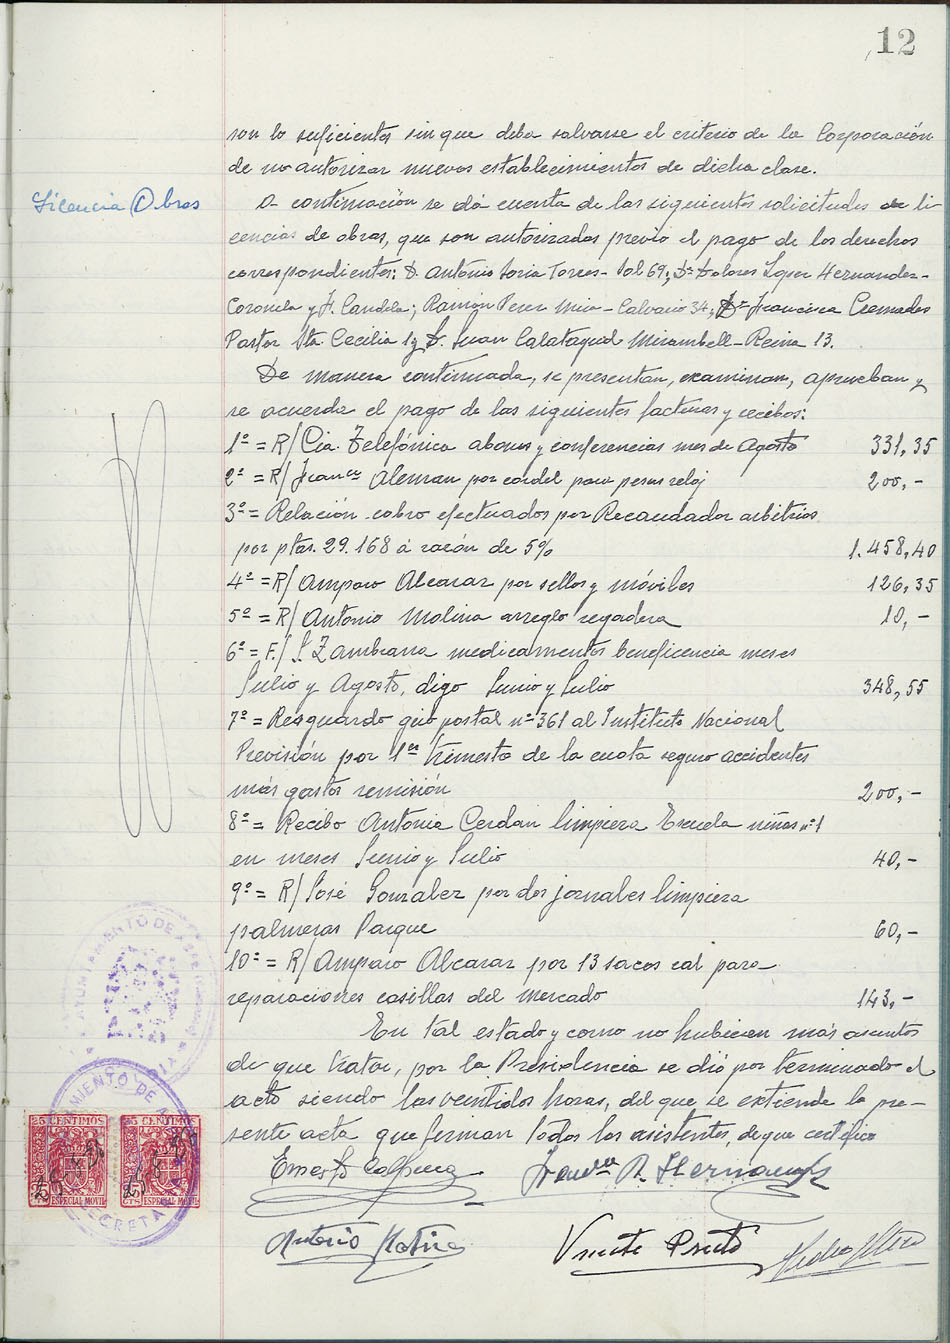 12
son lo suficientes sin que deba salvarse el criterio de la Corporación
de no autorizar nuevos establecimientos de dicha clase.
Licencia Obras
A continuación se dá cuenta de las siguientes solicitudes de li
cencias de obras, que son autorizadas previo el pago de los derechos
correspondientes: D. Antonio Soria Torres- Sol 69; Dª Dolores Lopez Hernandez-
Coronela y F. Candela; Ramón Perez Mira- Calvario 34; Dª Francisca Cremades
Pastor Sta. Cecilia 1 y D. Juan Calatayud Mirambell- Reina 13.
De manera continuada, se presentan, examinan, aprueban y
se acuerda el pago de las siguientes facturas y recibos:
1º = R/ Cia. Telefónica abonos y conferencias mes de Agosto 331,35
2º = R/ Francº Aleman por cordel para pesas reloj 200,-
3º = Relación cobro efectuados por Recaudador arbitrios
por ptas. 29.168 á razón de 5% 1.458,40
4º = R/ Amparo Alcaraz por sellos y móviles 126,35
5º = R/ Antonio Molina arreglo regadera 10,-
6º = F./ S. Zambrana medicamentos beneficencia meses
Julio y Agosto, digo Junio y Julio 348,55
7º = Resguardo giro postal nº 361 al Instituto Nacional
Previsión por 1er trimestre de la cuota seguro accidentes
más gastos remisión 200,-
8º = Recibo Antonia Cerdan limpieza Escuela niñas nº 1
en meses Junio y Julio 40,-
9º = R/ José Gonzalez por dos jornales limpieza
palmeras Parque 60,-
10º = R/ Amparo Alcaraz por 13 sacos cal para
reparaciones casillas del mercado 143,-
En tal estado y como no hubieren más asuntos
de que tratar, por la Presidencia se dió por terminado el
acto siendo las veintidos horas, del que se extiende la pre-
sente acta que firman todos los asistentes, de que certifico
AYUNTAMIENTO DE
25 CENTIMOS 25 CENTIMOS
ESPECIAL MOVIL ESPECIAL MOVIL
SECRETARIA
Hernandez
Antonio
Vicente Prieto